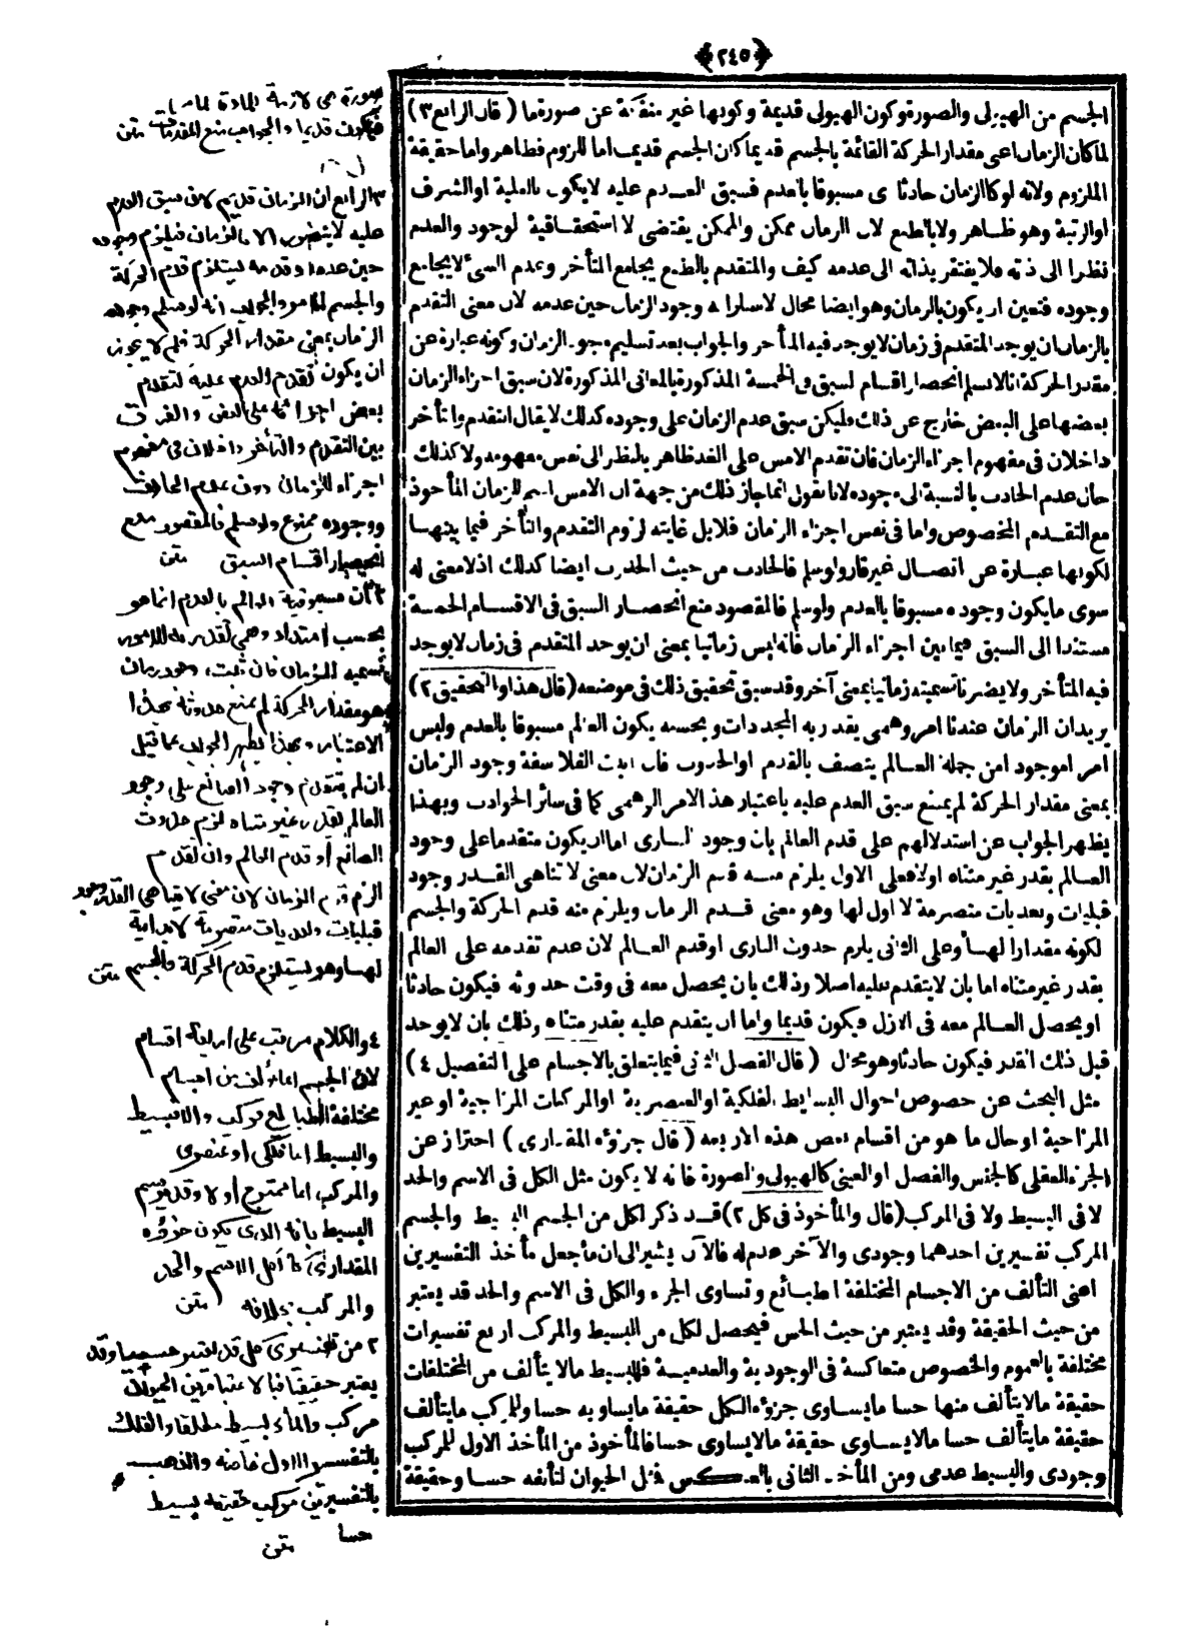 ﴿٢٤٥﴾
الجسم من الهيولى والصورة وكون الهيولى قديمة وكونها غير منفكة عن صورة ما ( قال الرابع ٣ )
لما كان الزمان اعنى مقدار الحركة القائمة بالجسم قديما كان الجسم قديما اما اللزوم فظاهر واما حقيقة
الملزوم ولانه لو كان الزمان حادثا اى مسبوقا بالعدم فسبق العدم عليه لا يكون بالعلية او الشرف
او الرتبة وهو ظاهر ولا بالطبع لان الزمان ممكن والممكن يقتضى لا استحقاقية لوجود والعدم
نظرا الى ذاته فلا يفتقر بذاته الى عدمه كيف والمتقدم بالطبع يجامع المتأخر وعدم الشئ لا يجامع
وجوده فتعين ان يكون بالزمان وهو ايضا محال لاستلزامه وجود الزمان حين عدمه لان معنى التقدم
بالزمان ان يوجد المتقدم فى زمان لا يوجد فيه المتأخر والجواب بعد تسليم وجود الزمان وكونه عبارة عن
مقدر الحركة انا لا نسلم انحصار اقسام السبق فى الخمسة المذكورة بالمعانى المذكورة لان سبق اجزاء الزمان
بعضها على البعض خارج عن ذلك وليكن سبق عدم الزمان على وجوده كذلك لا يقال التقدم والتأخر
داخلان فى مفهوم اجزاء الزمان فان تقدم الامس على الغد ظاهر بالنظر الى نفس مفهومه ولا كذلك
حال عدم الحادث بالنسبة الى وجوده لانا نقول انما جاز ذلك من جهة ان الامس اسم للزمان المأخوذ
مع التقدم المخصوص واما فى نفس اجزاء الزمان فلا بل غايته لزوم التقدم والتأخر فيما بينها
لكونها عبارة عن اتصال غير قار ولو سلم فالحادث من حيث الحدوث ايضا كذلك اذ لا معنى له
سوى ما يكون وجوده مسبوقا بالعدم ولو سلم فالمقصود منع انحصار السبق فى الاقسام الخمسة
مستندا الى السبق فيما بين اجزاء الزمان فانه ليس زمانيا بمعنى ان يوجد المتقدم فى زمان لا يوجد
فيه المتأخر ولا يضرنا تسميته زمانيا بمعنى آخر وقد سبق تحقيق ذلك فى موضعه ( قال هذا والتحقيق ٢ )
يريد ان الزمان عندنا امر وهمى يقدر به المتجددات وبحسبه يكون العالم مسبوقا بالعدم وليس
امرا موجودا من جملة العالم يتصف بالقدم او الحدوث فان اثبت الفلاسفة وجود الزمان
بمعنى مقدار الحركة لم يمتنع سبق العدم عليه باعتبار هذا الامر الوهمى كما فى سائر الحوادث وبهذا
يظهر الجواب عن استدلالهم على قدم العالم بان وجود البارى اما ان يكون متقدما على وجود
العالم بقدر غير متناه اولا فعلى الاول يلزم منه قدم الزمان لان معنى لا تناهى القدر وجود
قبليات وبعديات متصرمة لا اول لها وهو معنى قدم الزمان ويلزم منه قدم الحركة والجسم
لكونه مقدارا لها وعلى الثانى يلزم حدوث البارى او قدم العالم لان عدم تقدمه على العالم
بقدر غير متناه اما بان لا يتقدم عليه اصلا وذلك بان يحصل معه فى وقت حدوثه فيكون حادثا
او يحصل العالم معه فى الازل فيكون قديما واما ان يتقدم عليه بقدر متناه وذلك بان لا يوجد
قبل ذلك القدر فيكون حادثا وهو محال ( قال الفصل الثانى فيما يتعلق بالاجسام على التفصيل ٤ )
مثل البحث عن خصوص احوال البسايط الفلكية او العنصرية او المركبات المزاجية او غير
المزاجية او حال ما هو من اقسام بعض هذه الاربعة ( قال جزؤه المقدارى ) احتراز عن
الجزء العقلى كالجنس والفصل او العينى كالهيولى والصورة فانه لا يكون مثل الكل فى الاسم والحد
لا فى البسيط ولا فى المركب ( قال والمأخوذ فى كل ٢ ) قد ذكر لكل من الجسم البسيط والجسم
المركب تفسيرين احدهما وجودى والآخر عدمى فالآن يشير الى ان ما جعل مأخذ التفسيرين
اعنى التألف من الاجسام المختلفة الطبائع وتساوى الجزء والكل فى الاسم والحد قد يعتبر
من حيث الحقيقة وقد يعتبر من حيث الحس فيحصل لكل من البسيط والمركب اربع تفسيرات
مختلفة بالعموم والخصوص متعاكسة فى الوجودية والعدمية فالبسيط ما لا يتألف من المختلفات
حقيقة ما لا يتألف منها حسا ما يساوى جزؤه الكل حقيقة ما يساويه حسا والمركب ما يتألف
حقيقة ما يتألف حسا ما لا يساوى حقيقة ما لا يساوى حسا فالمأخوذ من المأخذ الاول للمركب
وجودى والبسيط عدمى ومن المأخذ الثانى بالعكس فمثل الحيوان لتألفه حسا وحقيقة
صورة هى لازمة للمادة لما مر
فيكون قديما والجواب منع المقدمات متن
٣ الرابع ان الزمان قديم لان سبق العدم
عليه لا يتصور الا بالزمان فيلزم وجوده
حين عدمه وقدمه يستلزم قدم الحركة
والجسم لما مر والجواب انه لو سلم وجود
الزمان بمعنى مقدار الحركة فلم لا يجوز
ان يكون تقدم العدم عليه كتقدم
بعض اجزائه على البعض والفرق
بين التقدم والتأخر داخلان فى مفهوم
اجزاء الزمان دون عدم الحادث
ووجوده ممنوع ولو سلم فالمقصود منع
انحصار اقسام السبق متن
٢ ان مسبوقية العالم بالعدم انما هو
بحسب امتداد وهمى تقدر به الامور
نسميه الزمان فان ثبت وجود زمان
هو مقدار الحركة لم يمتنع حدوثه بهذا
الاعتبار وبهذا يظهر الجواب عما قيل
ان لم يتقدم وجود الصانع على وجود
العالم بقدر غير متناه لزم حدوث
الصانع او قدم العالم وان تقدم
الزم قدم الزمان لان معنى لا تناهى القدر وجود
قبليات وبعديات متصرمة لا بداية
لها وهو يستلزم قدم الحركة والجسم متن
٤ والكلام مرتب على اربعة اقسام
لان الجسم اما تألف من اجسام
مختلفة الطبائع فمركب والا فبسيط
والبسيط اما فلكى او عنصرى
والمركب اما ممتزج او لا وقد يرسم
البسيط بانه الذى يكون جزؤه
المقدارى كالكل فى الاسم والحد
والمركب بخلافه متن
٢ من تفسيرى كل قد يعتبر حسيا وقد
يعتبر حقيقيا فبالاعتبارين الحيوان
مركب والماء بسيط مطلقا والفلك
بالتفسير الاول خاصة والذهب
بالتفسيرين مركب حقيقة بسيط
حسا متن